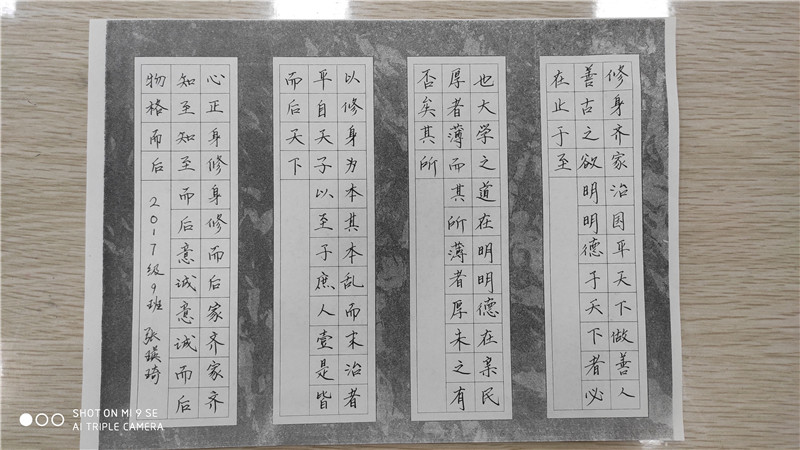 修身齐家治国平天下做善人
善古之欲明明德于天下者必
在止于至
也大学之道在明明德在亲民
厚者薄而其所薄者厚未之有
否矣其所
以修身为本其本乱而末治者
平自天子以至于庶人壹是皆
而后天下
心正身修身修而后家齐家齐
知至知至而后意诚意诚而后
物格而后 2017级9班 张瑛琦
SHOT ON MI 9 SE
AI TRIPLE CAMERA